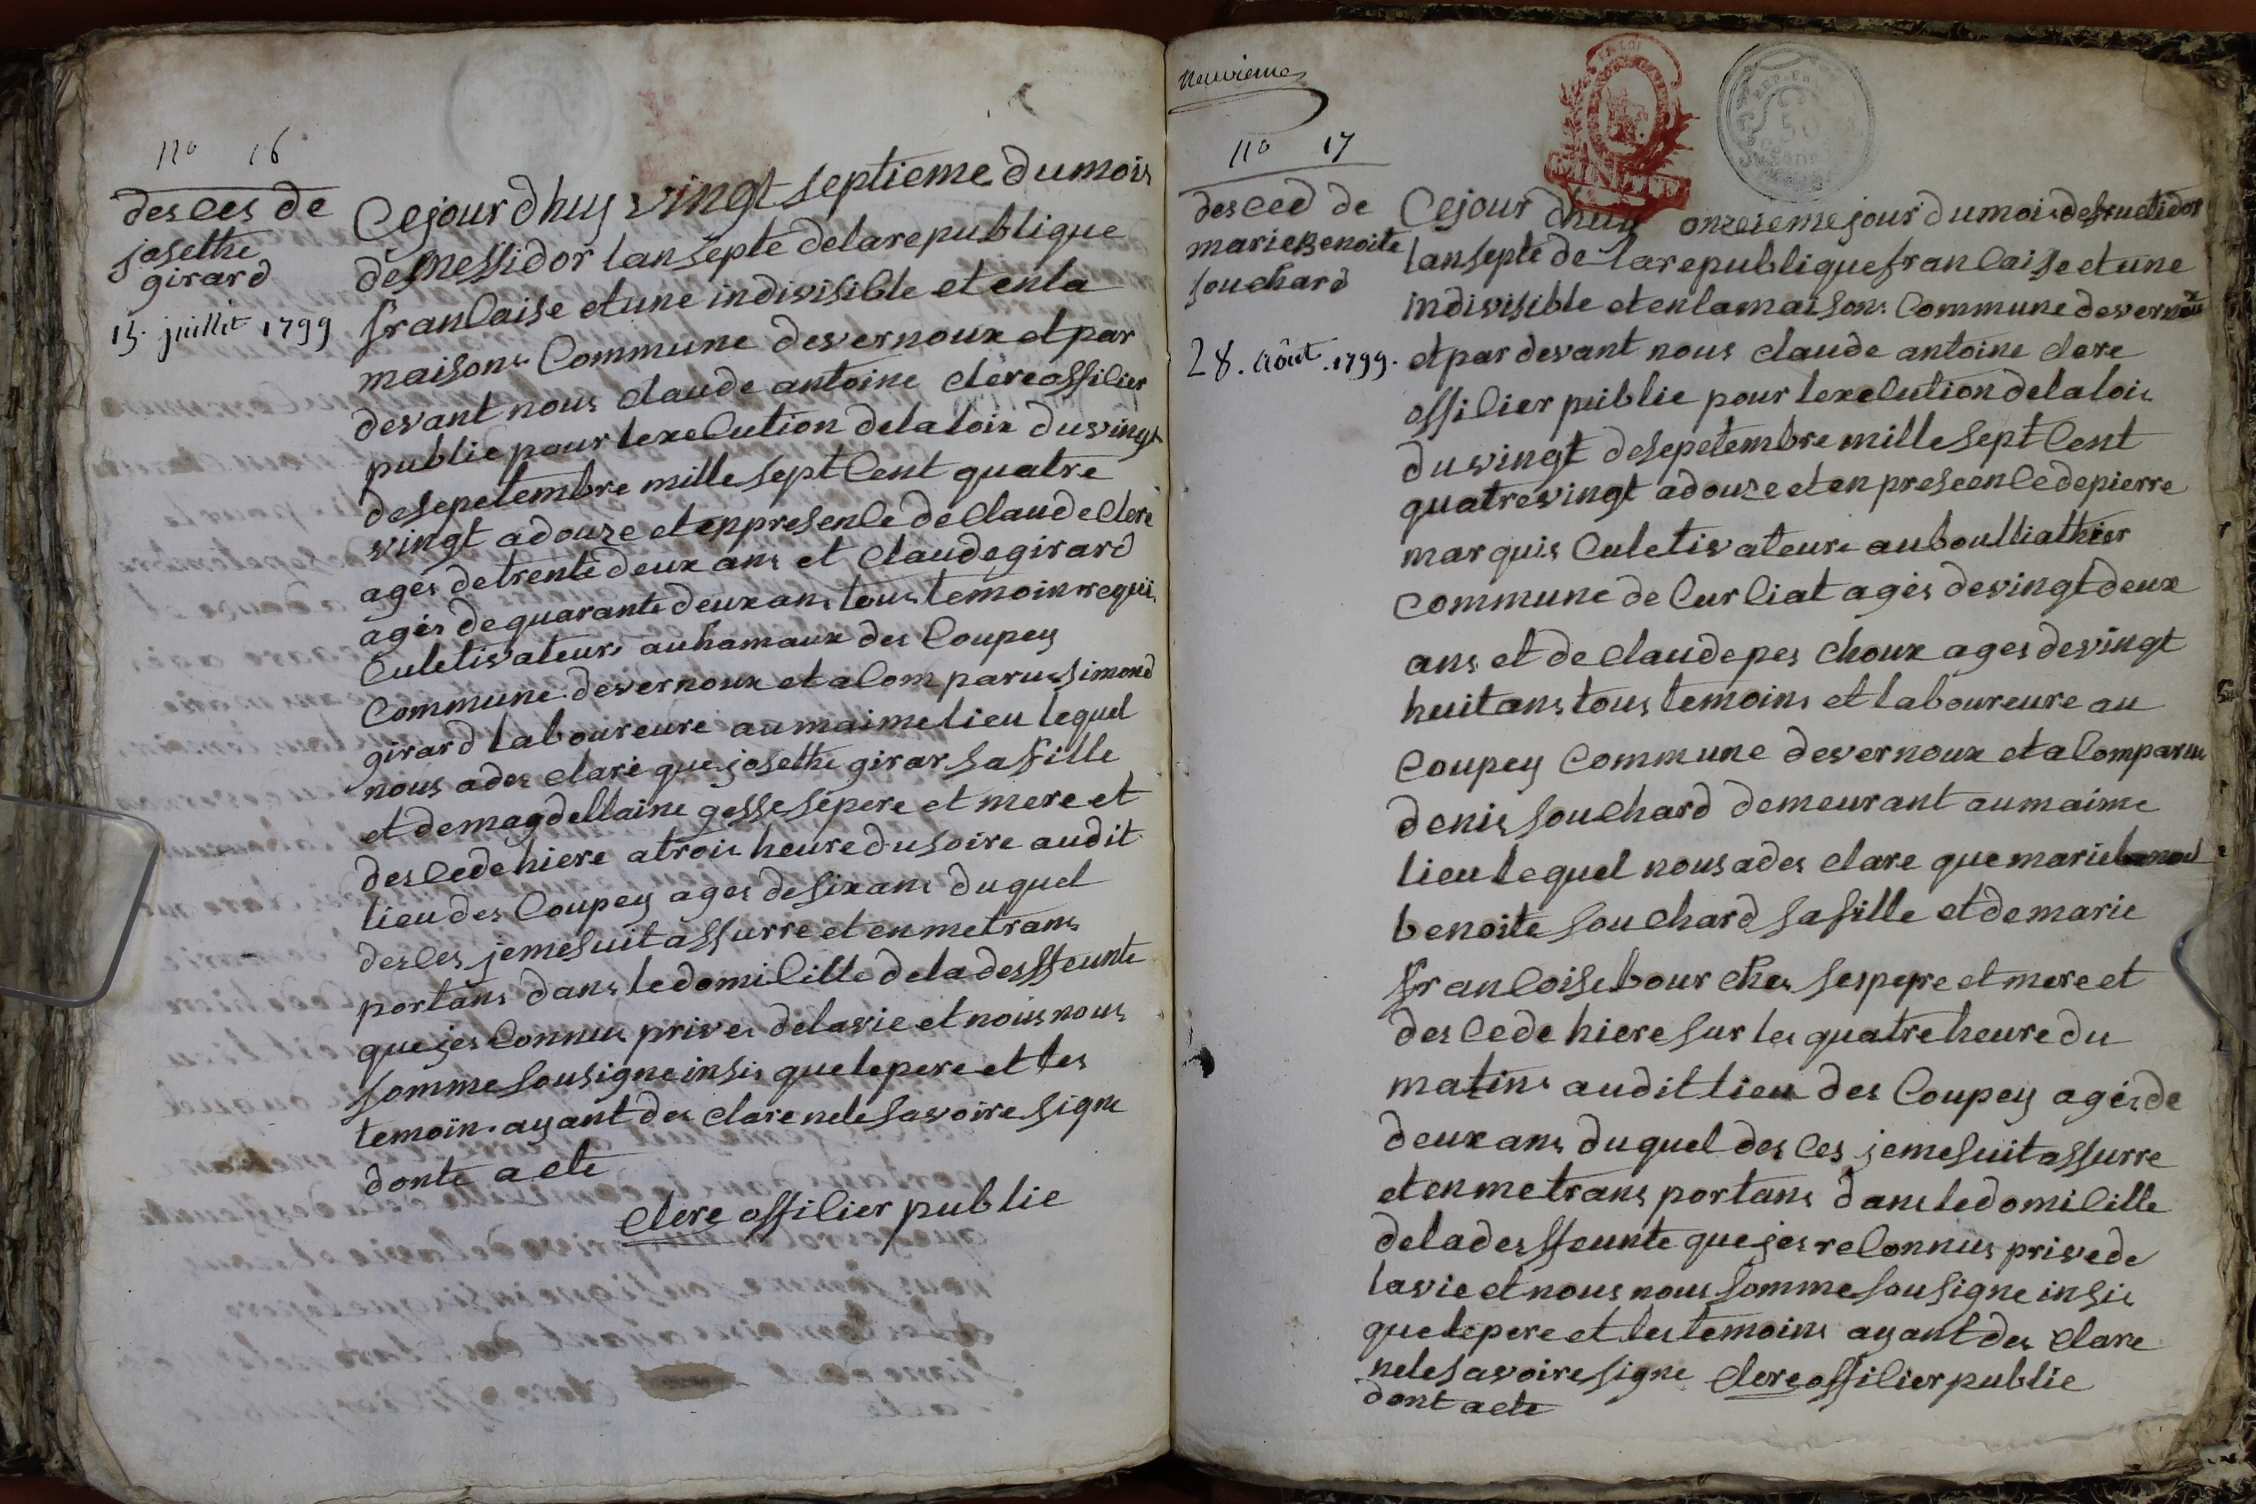 no 16
desces de
josethe
girard
15. juillet 1799
Cejourdhuy vingt septieme dumois
de messidor lansepte delarepublique
francaise etune indivisible et enla
maisons Commune devernoux etpar
devant nous claude antoine clere officier
publie pour lexecution delaloix duvingt
desepetembre mille sept Cent quatre
vingt adouze etenpresence declaude clere
ages detrente deux ans et claudegirard
ages dequarante deux ans tous temoin requi
Culetivateurs auhamaux des Coupey
Commune devernoux etaComparus simond
girard laboureure aumaime lieu lequel
nous ades clare que josethe girar safille
et demagdellaine gosse sepere et mere et
descede hiere atrois heure dusoire audit
lieu des Coupey ages desixans duquel
desces jemesuit assurre et enmetrans
portans dans ledomicille deladesffeunte
quejes Connus prives delavie et nous nous
somme sousigne insis quelepere et les
temoin ayant des clare nele savoire signe
donte acte
Clere officier publie
neuvieme
no 17
desced de
marie Benoite
souchard
28. Août .1799.
Cejour dhuy onzeieme jour dumois defructidor
lansepte de larepublique francaise etune
indivisible et enlamaisons Commune devernoux
etpardevant nous claude antoine clere
officier publie pour lexecution delalois
duvingt desepetembre mille sept Cent
quatrevingt adouze etenpreseence depierre
marquis Culetivateure auboulliathier
Commune de Curciat ages devingtdeux
ans et de claude pes choux ages devingt
huitans tous temoins et laboureure au
Coupey Commune devernoux etaComparus
denis souchard demeurant aumaime
lieu lequel nous ades clare que marie
benoite souchard safille et de marie
francoise bour ches sespepre et mere et
descede hiere sur les quatre heure du
matins audit lieu des Coupey ages de
deux ans duquel des ces jemesuit assurre
et enmetrans portans dans ledomicille
deladesffeunte quejes reconnus privede
lavie et nous nous somme sousigne insis
quelepere et les temoins ayant des clare
nele savoire signe Clere officier publie
dont acte